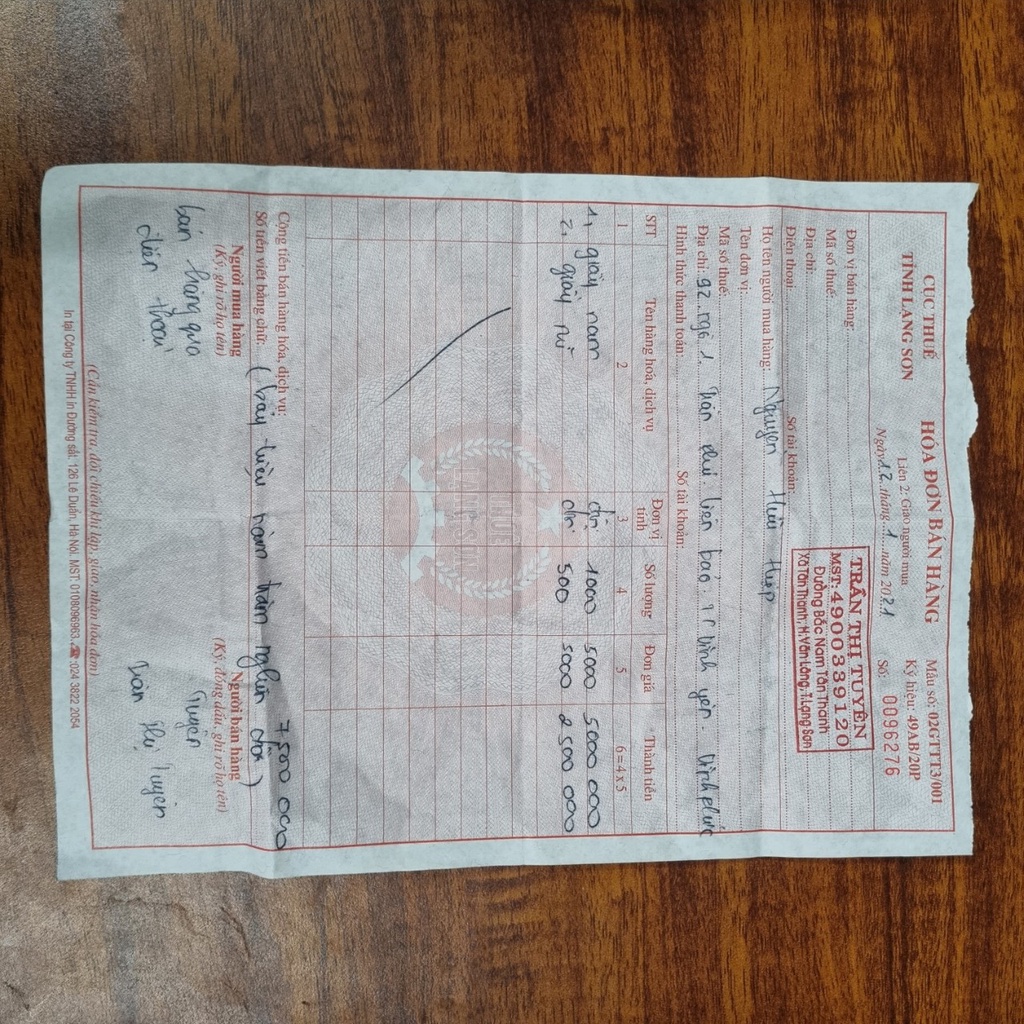 CỤC THUẾ
TỈNH LẠNG SƠN
HÓA ĐƠN BÁN HÀNG
Liên 2: Giao người mua
Ngày 12 tháng 1 năm 2021
Mẫu số: 02GTTT3/001
Ký hiệu: 49AB/20P
Số: 0096276
Đơn vị bán hàng:
Mã số thuế:
Địa chỉ:
Điện thoại: Số tài khoản:
TRẦN THỊ TUYÊN
MST: 4900339120
Đường Bắc Nam Tân Thanh
Xã Tân Thanh, H.Văn Lãng, T.Lạng Sơn
Họ tên người mua hàng: Nguyễn Hữu
Tên đơn vị:
Mã số thuế:
Địa chỉ: 92 ngõ 1 Trần phú. liên bảo. vĩnh yên. Vĩnh phúc
Hình thức thanh toán: Số tài khoản:
STT Tên hàng hoá, dịch vụ Đơn vị tính Số lượng Đơn giá Thành tiền
1 2 3 4 5 6 = 4 x 5
1, giầy nam 1000 5000 5000 000
2, giầy nữ 500 5000 2500 000
Cộng tiền bán hàng hóa, dịch vụ: 7,500 000
Số tiền viết bằng chữ: ( bảy triệu năm trăm nghìn )
Người mua hàng
(Ký, ghi rõ họ tên)
bán hàng qua
điện thoại
Người bán hàng
(Ký, đóng dấu, ghi rõ họ tên)
Tuyên
Trần Thị Tuyên
(Cần kiểm tra, đối chiếu khi lập, giao, nhận hóa đơn)
In tại Công ty TNHH in Đường sắt. 126 Lê Duẩn, Hà Nội. MST: 0108096963. ☎:024 3822 2054